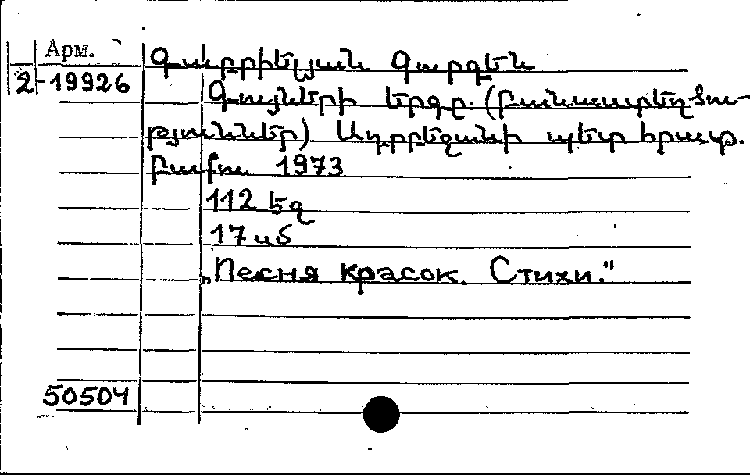 Арм.
2-19926
Գաբրիելյան Գարգեն
Գույների երգը. (բանաստեղծու-
թյուններ) Ադրբեջանի պետ հրատ.
Բաքու 1973
112 եզ
17 սմ
„Песня красок. Стихи."
50504